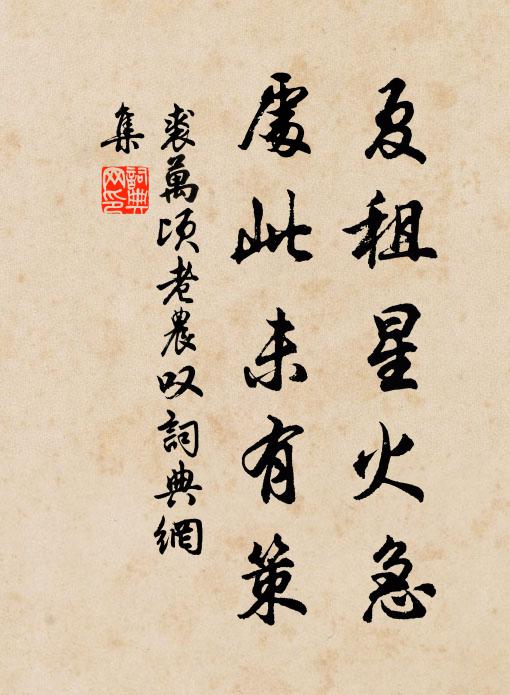 夏租星火急
處此未有策
裘萬頃老農叹詞典網
集
詞典
网印